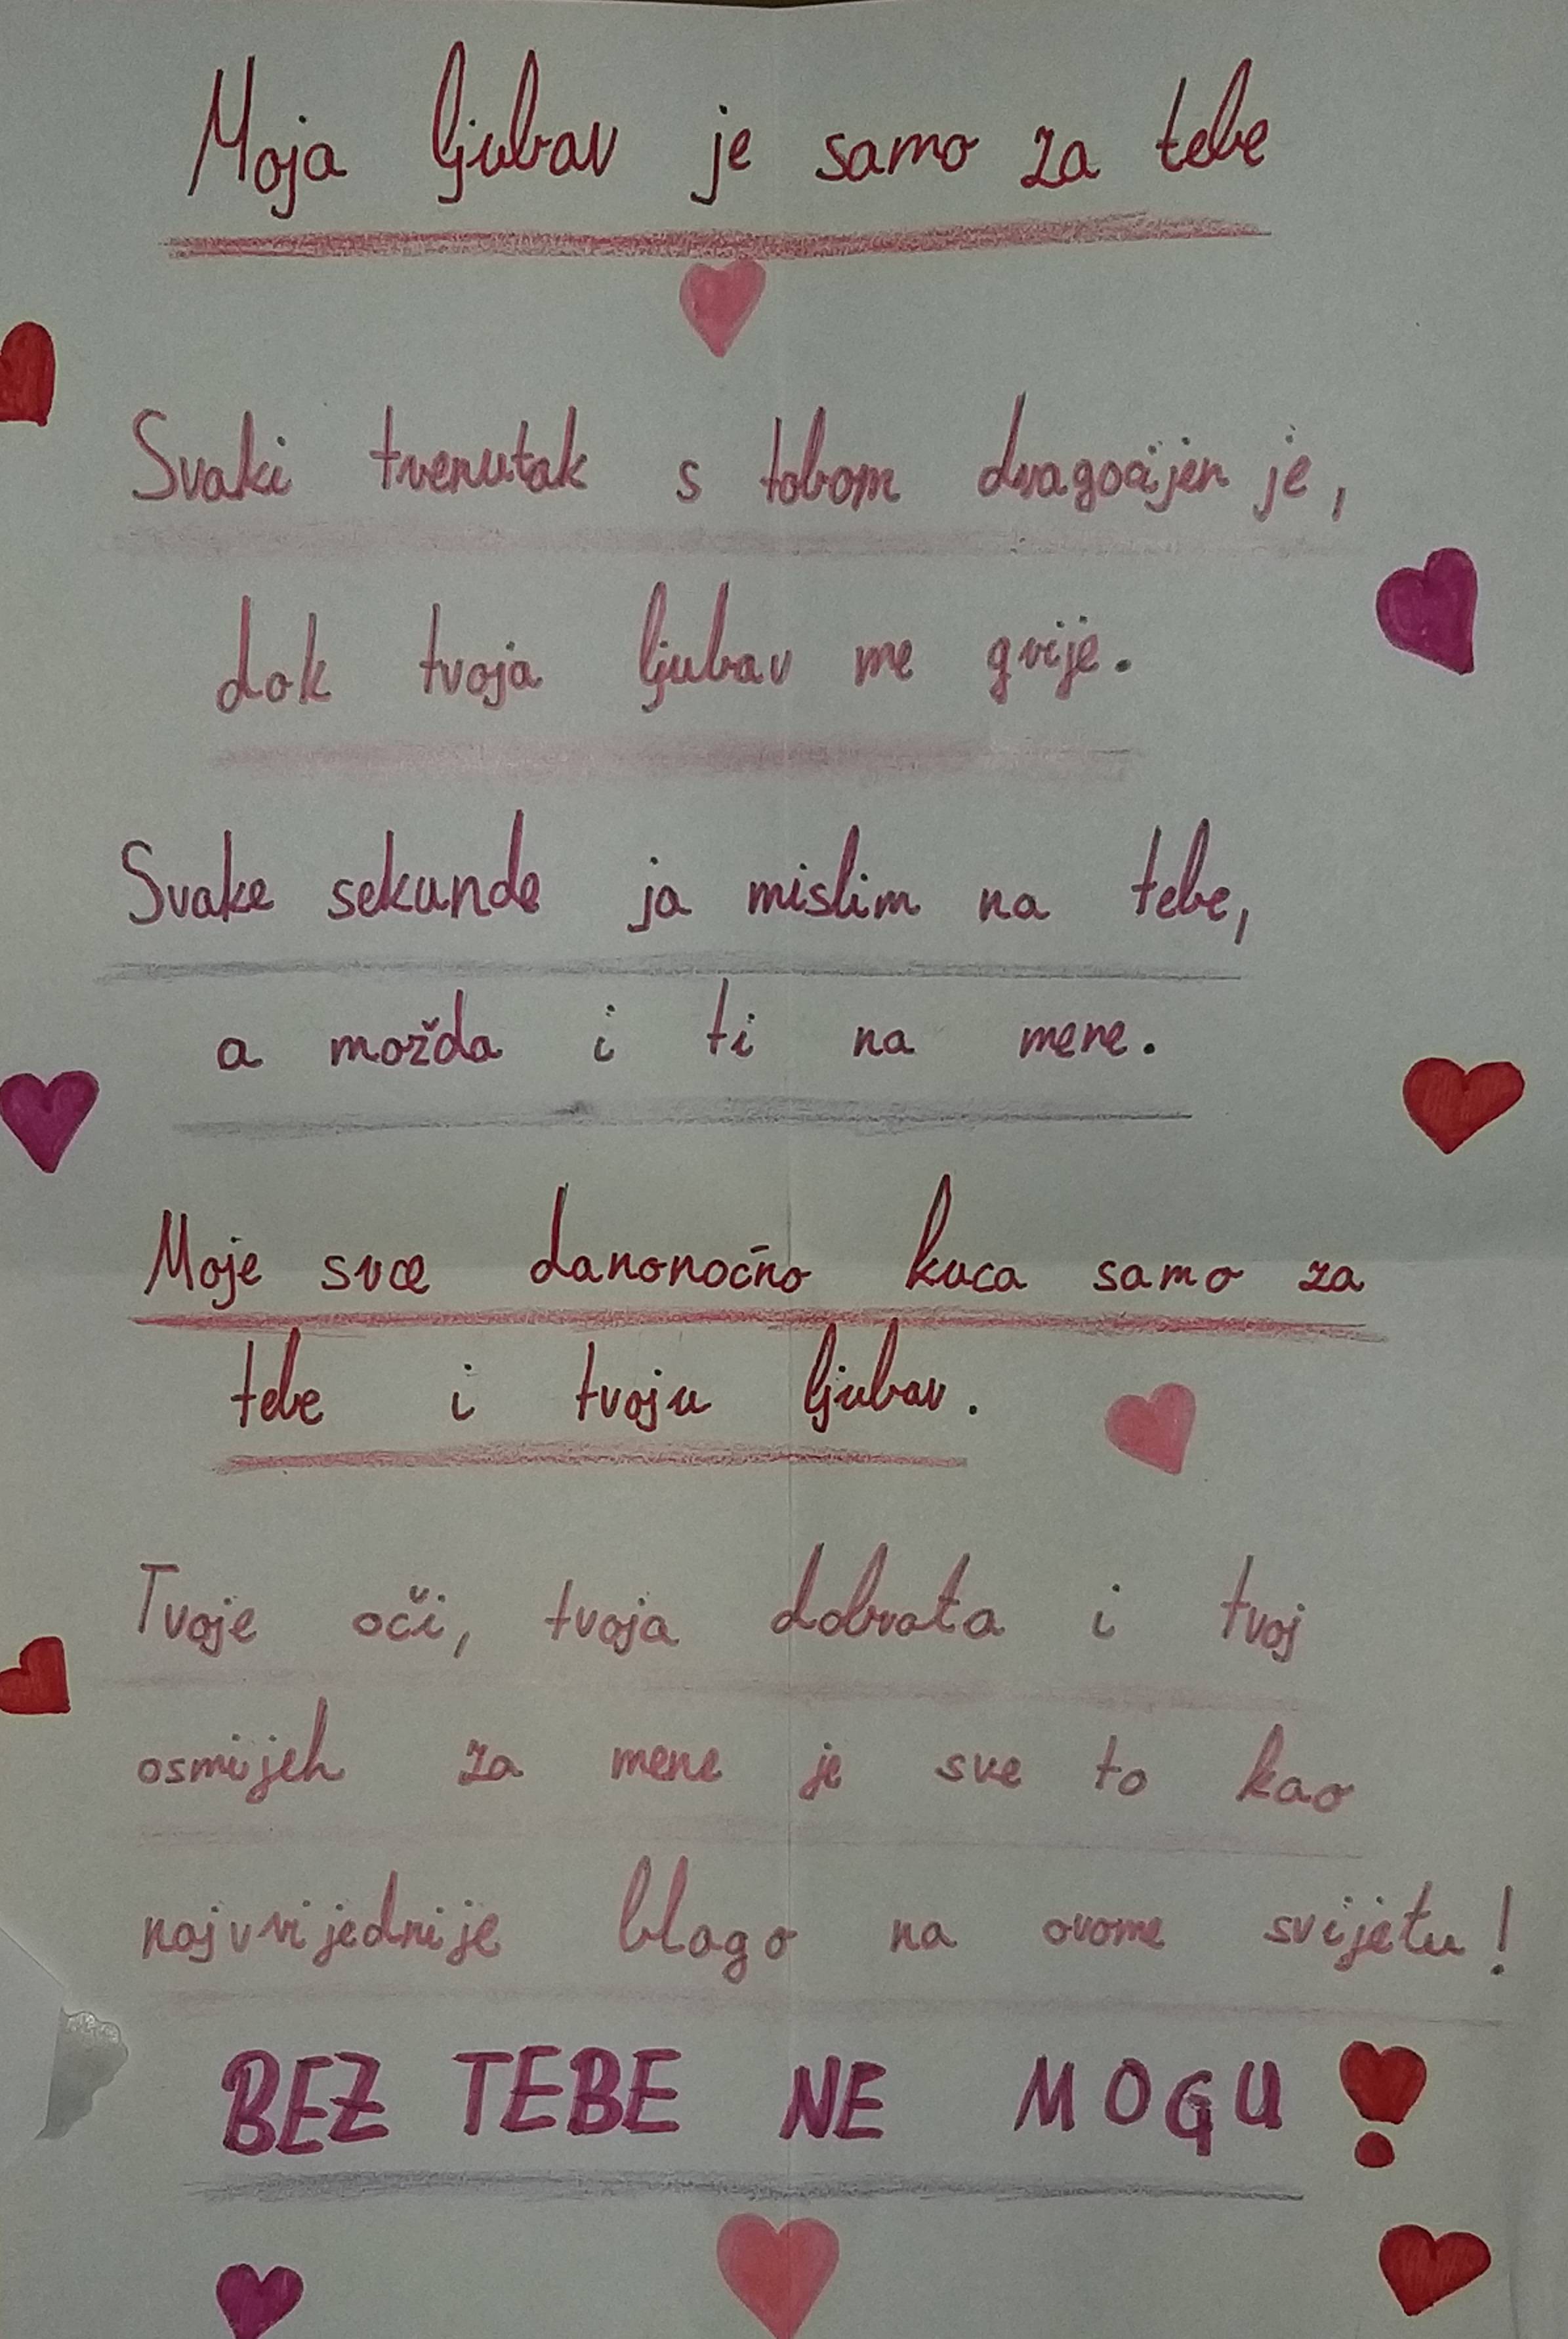 Moja ljubav je samo za tebe
Svaki trenutak s tobom dragocijen je,
dok tvoja ljubav me grije.
Svake sekunde ja mislim na tebe,
a možda i ti na mene.
Moje srce danonoćno kuca samo za
tebe i tvoju ljubav.
Tvoje oči, tvoja dobrota i tvoj
osmijeh za mene je sve to kao
najvrijednije blago na ovome svijetu!
BEZ TEBE NE MOGU!